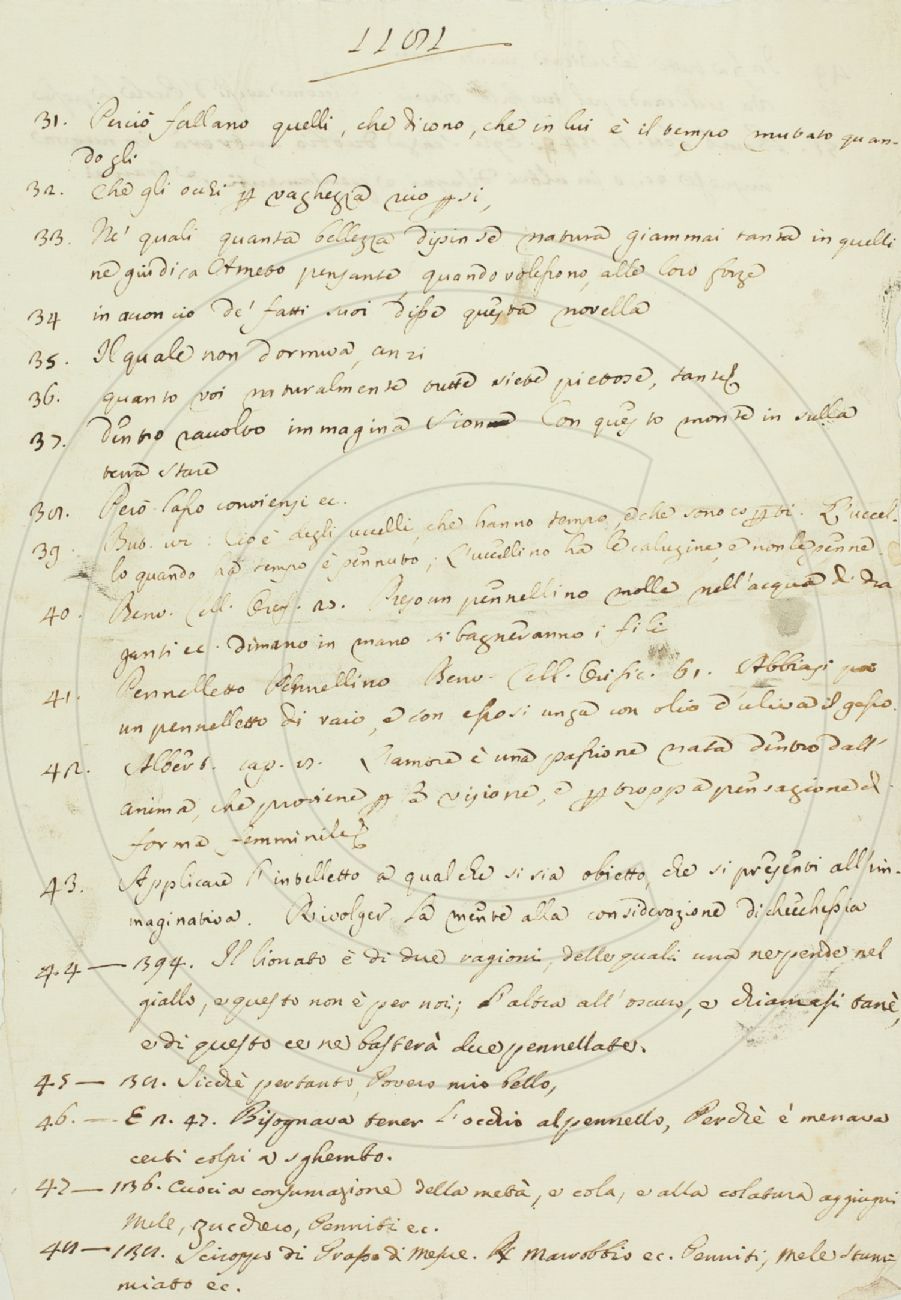 31. Perciò fallano quelli, che dicono, che in lui è il tempo mutato quan-
do gli
32. Che gli occhi ꝑ vaghezza
33. Ne' quali quanta bellezza dipinse natura giammai tanta in quelli
ne giudica Ameto pensante, quando volessono, alle loro forze
34 in acconcio de' fatti suoi disse questa novella
35. Il quale non dormiva, anzi
36. quanto voi naturalmente tutte siete pietose, tante
37. dentro raccolto immagina Sion Con questo monte in sulla
terra stare
38. Però lasso conviensi ec.
39. But. : Cioè degli uccelli, che hanno tempo, e che sono coꝑti. L'uccel-
lo quando ha tempo è pennuto; L'uccellino ha le calugine, e non le penne.
40. Benv. Cell. Oref. 23. Preso un pennellino molle nell'acqua di dra
ganti ec. di mano in mano si bagneranno i fili
41. Pennelletto Pennellino Benv. Cell. Orific. 61. Abbiasi poi
un pennelletto di vaio, e con esso si unga con olio d'uliva il gesso.
42. Albert. cap. L'amore è una passione nata dentro dall'
anima, che proviene ꝑ la visione, e ꝑ troppa pensagione di
forma femminile
43. Applicare l'intelletto a qualche si sia obietto, che si presenti all'im-
maginativa. Rivolger la mente alla considerazione dichecchessia
44 — 394. Il lionato è di due ragioni, delle quali una ne pende nel
giallo, e questo non è per noi; l'altra all'oscuro, e chiamasi tanè,
e di questo ce ne basterà due pennellate.
45 — 138. Sicchè pertanto, Povero mio bello,
46. — E 2. 47. Bisognava tener l'occhio al pennello, Perchè e' menava
certi colpi a sghembo.
47 — 136. Cuoci a consumazione della metà, e cola, e alla colatura aggiugni
Mele, zucchero, Penniti ec.
48 — 138. Sciroppo di Prassio di Mesue. ℞ Marrobbio ec. Penniti, Mele stum-
miato ec.